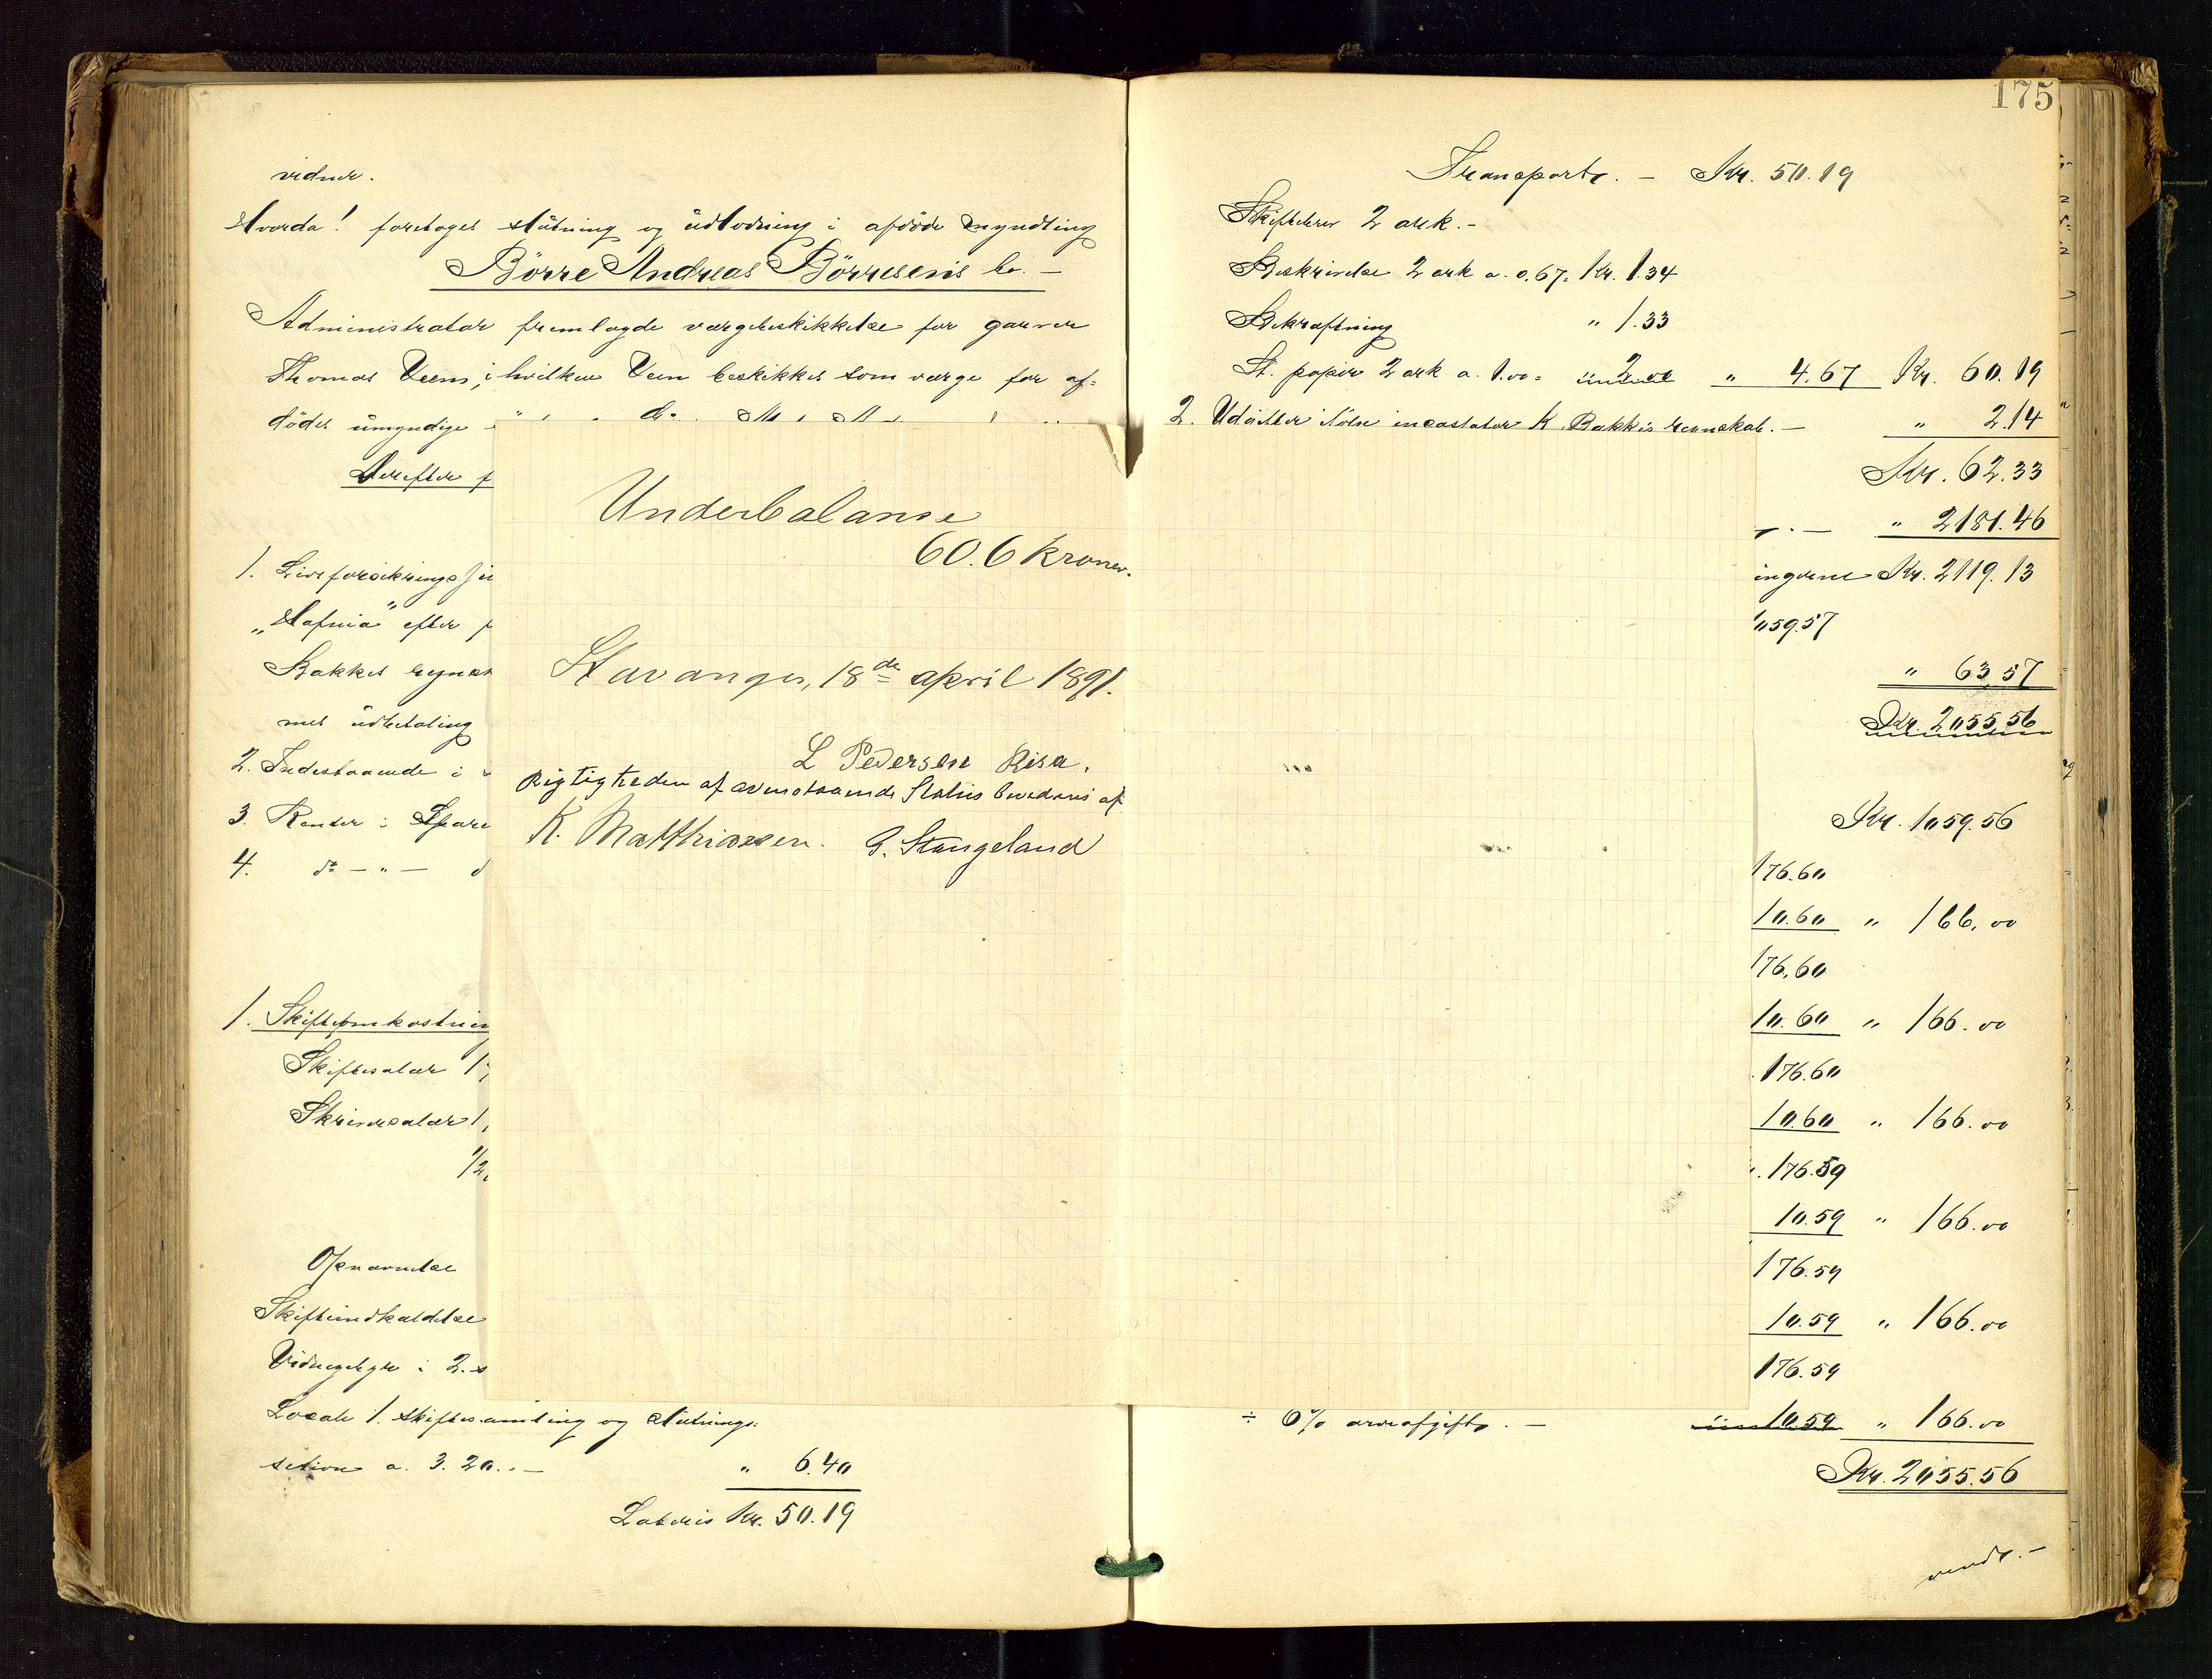 vidner.
Hvorda! foretoges slutning og udlodning i afdöde myndling
Börre Andreas Börresens bo. —
Administrator fremlagde værgebeskikkelse for garver
Thomas Veen, i hvilken Veen beskikkes som værge for af=
dödes umyndige
Derefter f
1. Livsforsikrings
„Hafnia" efter
Bakkes regnsk
mel udbetaling
2. Indestaaende i
3. Renter i Spare
4. do — " — d
1. Skifteomkostnin
Skiftesalær 1
Skriversalær 1
1/2
Opnævnelse
Skifteindkaldelse
Vidnegebyr i 2. s
Locale 1. skiftesamling og slutnings:
session a. 3.20. — " 6.40
Lateris Kr. 50.19
Underbalanse
60.6 kroner.
Stavanger, 18de april 1891.
L Pedersen Risa.
Rigtigheden af ovenstaaende Status bevidnes af
K. Matthiassen. G. Stangeland
175
Transport. — Kr. 50.19
Skiftebrev 2 ark. —
Beskrivelse 2 ark a. 0.67 = Kr. 1.34
Bekræftning " 1.33
St. papir 2 ark a. 1.00 = 2.00 " 4.67 Kr. 60.19
2. Udgifter ifölge incassator K. Bakkes regnskab. — " 2.14
Kr. 62.33
— " 2181.46
ingerne Kr. 2119.13
1059.57
" 63.57
Kr. 2055.56
Kr. 1059.56
176.60
10.60 " 166.00
176.60
10.60 " 166.00
176.60
10.60 " 166.00
176.59
10.59 " 166.00
176.59
10.59 " 166.00
176.59
÷ 6% arveafgift. — 10.59 " 166.00
Kr. 2055.56
vendt. —